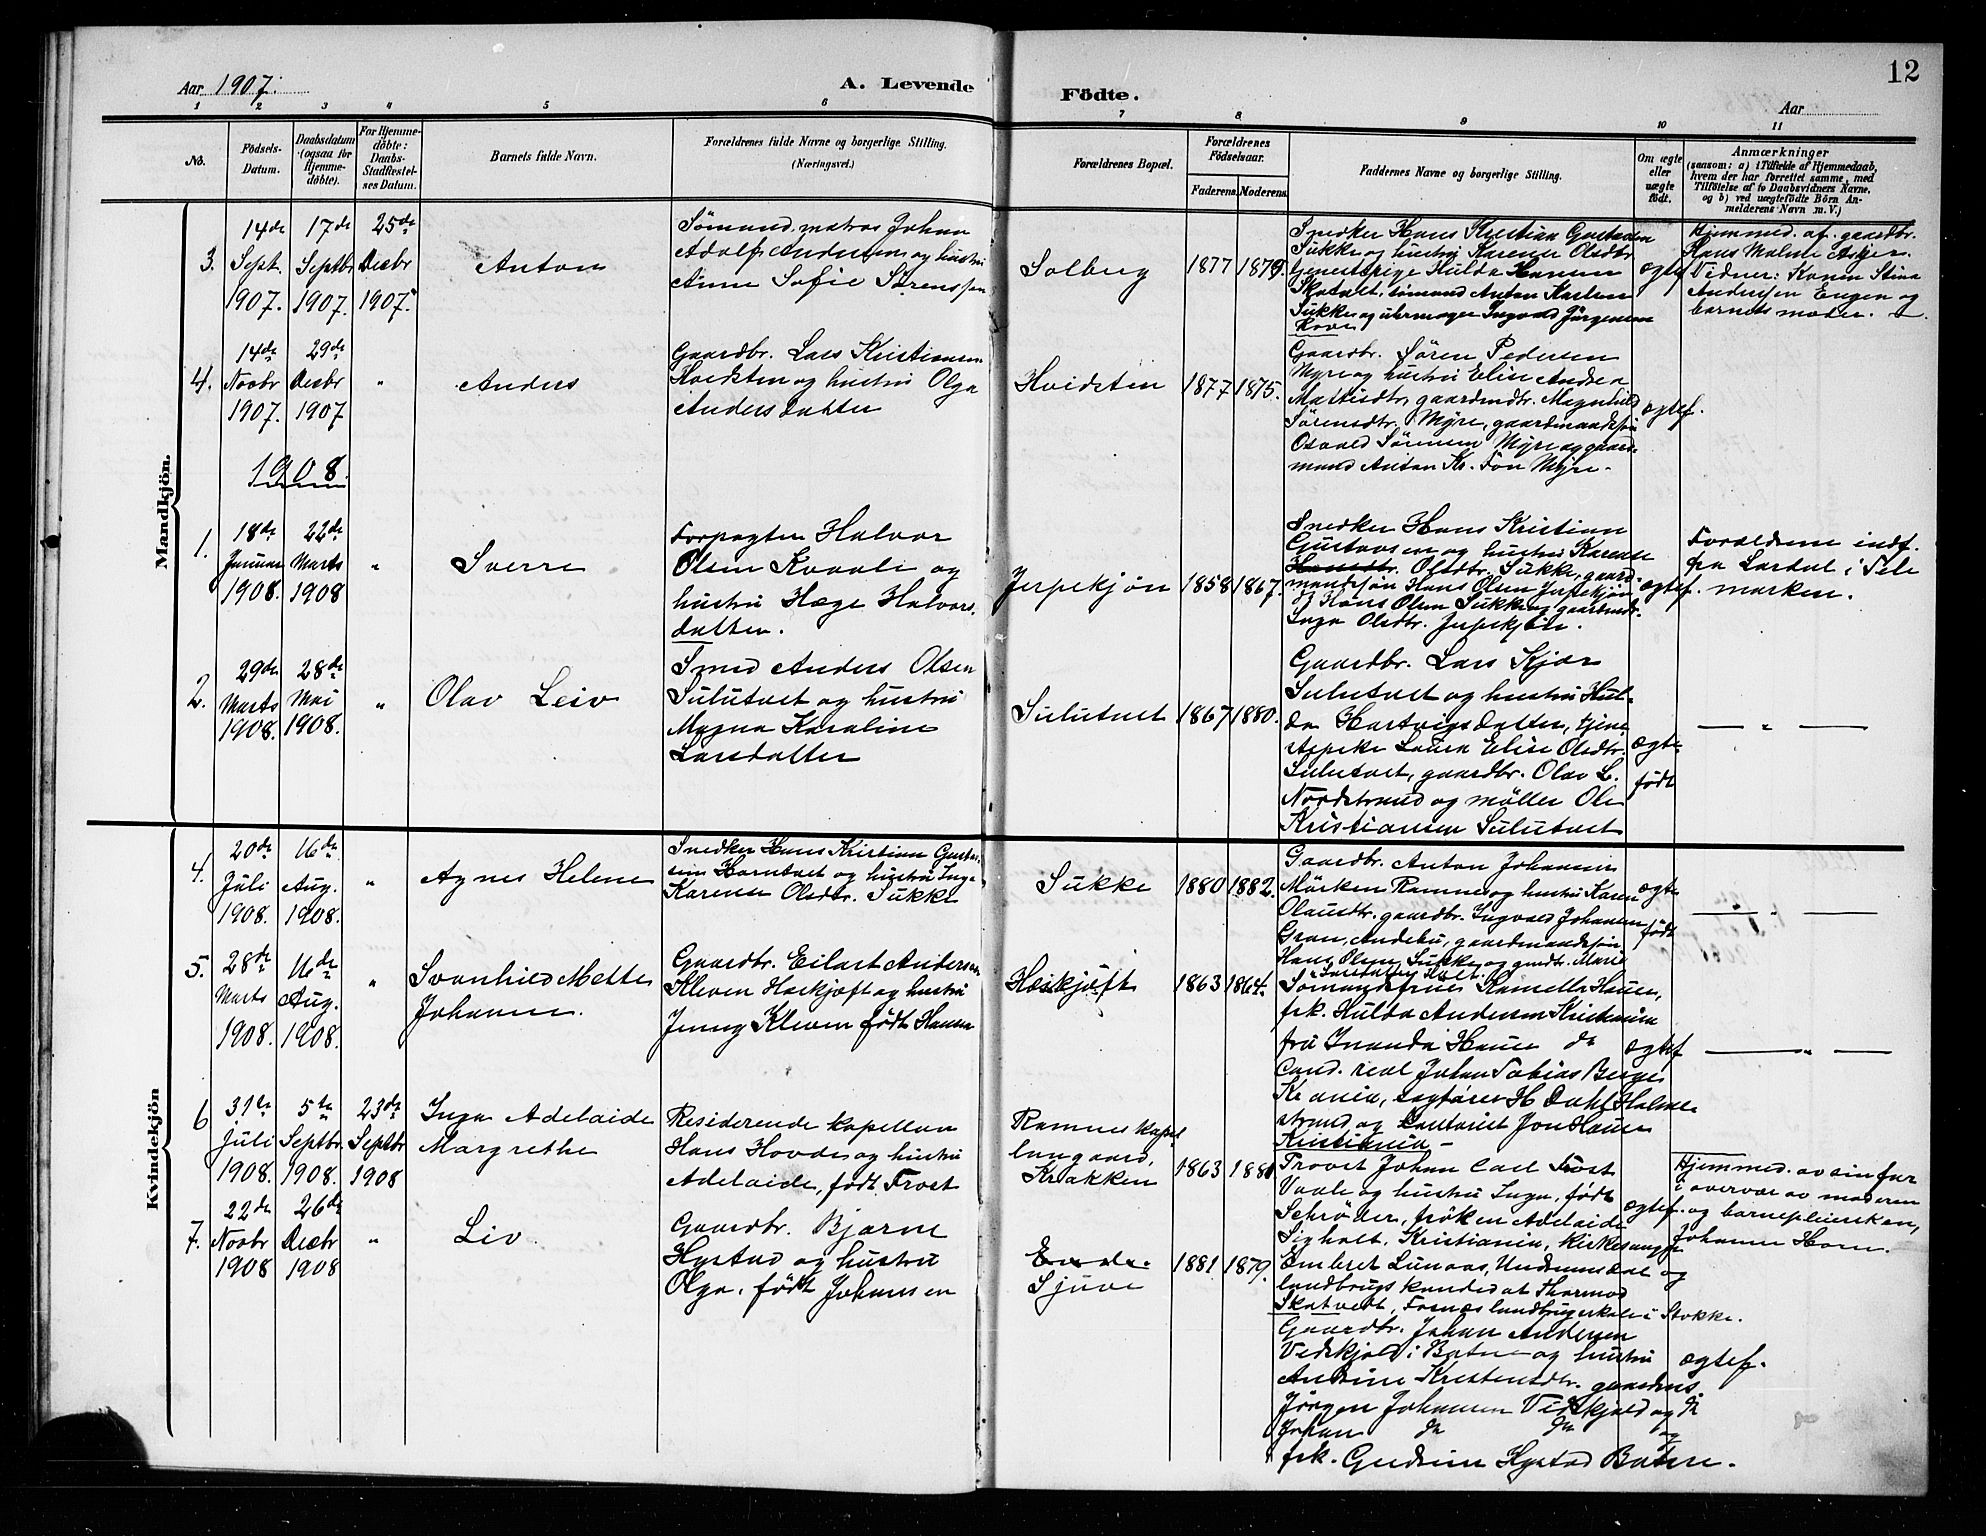 12
Aar 1907.
A. Levende
Födte.
Aar
1 2 3 4 5 6 7 8 9 10 11
No.
Födsels-
Datum.
Daabsdatum
(ogsaa for
Hjemme-
döbte).
For Hjemme-
döbte:
Daabs-
Stadfæstel-
ses Datum.
Barnets fulde Navn.
Forældrenes fulde Navne og borgerlige Stilling.
(Næringsvei.)
Forældrenes Bopæl.
Forældrenes
Födselsaar.
Faderens.
Moderens.
Faddernes Navne og borgerlige Stilling.
Om ægte
eller
uægte
født.
Anmærkninger
(saasom: a) i Tilfælde af Hjemmedaab,
hvem der har forrettet samme, med
Tilföielse af to Daabsvidners Navne,
og b) ved uægtefödte Börn An-
melderens Navn m. V.)
Mandkjön.
3.
14de
Sept.
1907.
17de
Septbr
1907.
25de
Decbr
1907.
Anton
Sømand, matros Johan
Adolf Andersen og hustru
Anne Sofie Sørenssen
Solberg
1877
1879.
Snedker Hans Kristian Gustavsen
Sukke og hustru Karense Olsdtr.
tjenestepige Hulda Hansen
Skatvet, sømand Anton Karlsen
Sukke og uhrmager Ingvald Jørgensen
ægtef
Hjemmed. af gaardbr.
Hans Malme
Vidner: Konen Stina
Andersen Engen og
barnets moder.
4.
14de
Novbr
1907.
29de
Decbr
1907
"
Anders
Gaardbr. Lars Kristiansen
Hvidsten og hustru Olga
Andersdatter
Hvidsten
1877
1875.
Gaardbr. Sören Pedersen
Myre og hustru Elise Andrea
Mattisdtr, gaardmdtr. Magnhild
Sørensdtr. Myre, gaardmandssøn
Osvald Sørensen Myre og gaard-
mand Anton Kr. Fon Myre.
ægtef.
1908.
1.
18de
Januar
1908.
22de
Marts
1908
"
Sverre
Forpagter Halvor
Olsen Kvaale og
hustru Hæge Halvors-
datter.
Jerpekjøn
1858
1867.
Snedker Hans Kristian
Gustavsen og hustru Karense
Olsdtr. Sukke, gaard-
mandssøn Hans Olsen Jerpekjøn
Hans Olsen Sukke og gaardmdtr.
Inga Olsdtr. Jerpekjøn.
ægtef.
Forældrene indf.
fra Lardal i Tele
marken.
2.
29de
Marts
1908.
28de
Mai
1908.
"
Olav Leiv
Smed Anders Olsen
Sulutvet og hustru
Magna Karoline
Larsdatter
Sulutvet
1867
1880.
Gaardbr. Lars Kjær
Sulutvet og hustru Hul-
da Hartvigsdatter, tjene-
stepike Laura Elise Olsdtr.
Sulutvet, gaardbr. Olav L.
Nordstrand og møller Ole
Kristiansen Sulutvet
ægte
födt
— " —
Kvindekjön
4.
20de
Juli
1908.
16de
Aug.
1908.
"
Agnes Helene
Snedker Hans Kristian Gustav-
sen Horntvet og hustru Inga
Karense Olsdtr. Sukke
Sukke
1880
1882.
Gaardbr. Anton Johannes
Mørken Ramnes og hustru Karen
Olausdtr. gaardbr. Ingvald Johansen
Gran, Andebu, gaardmandssøn
Hans Olsen Sukke og gmdt. Marie
Larsdatter Holt.
ægte
födt
— " —
5.
28de
Marts
1908.
16de
Aug.
1908.
"
Svanhild Mette
Johanne.
Gaardbr. Eilart Andersen
Kleven Haskjøft og hustru
Jenny Kleven født Hansen
Heskjøft
1863
1864.
Sømandsfrue Kamilla Hansen,
frk. Hulda Andersen Kristiania
fru Inanda Hanse do
Cand. real Johan Tobias Berge
Kr.ania, sagfører H. Dahl Holme-
strand og Jon Hansen
Kristiania —
ægtef
— " —
6
31te
Juli
1908.
5te
Septbr.
1908.
23de
Septbr
1908
Inga Adelaide
Margrethe
Residerende kapellan
Hans Hovde og hustru
Adelaide, født Frost
Ramnes kapel
langaard,
Krakken
1863
1881
Provst Johan Carl Frost
Vaale og hustru Inga, født
Schrøder, frøken Adelaide
Sigholt, Kristiania, kirkesanger
Embret Lunaas, Undrumsdal og
landbrugskandidat Thormod
Skatvedt, Fornæs landbrugsskole i Stokke.
ægtef.
Hjemmed. av sin far
i overvær av moderen
og barnepleiersken,
Johanne Horn.
7.
22de
Novbr
1908
26de
Decbr
1908
"
Liv.
Gaardbr. Bjarne
Hystad og hustru
Olga, født Johansen
Sjuve
1881
1879.
Gaardbr. Johan Andersen
Vedskjold i Botne og hustru
Andrine Kristensdtr. gaardms.
Jørgen Johansen Vedskjold og do
Johan do do og
frk. Gudrun Hystad Botne.
ægtef.